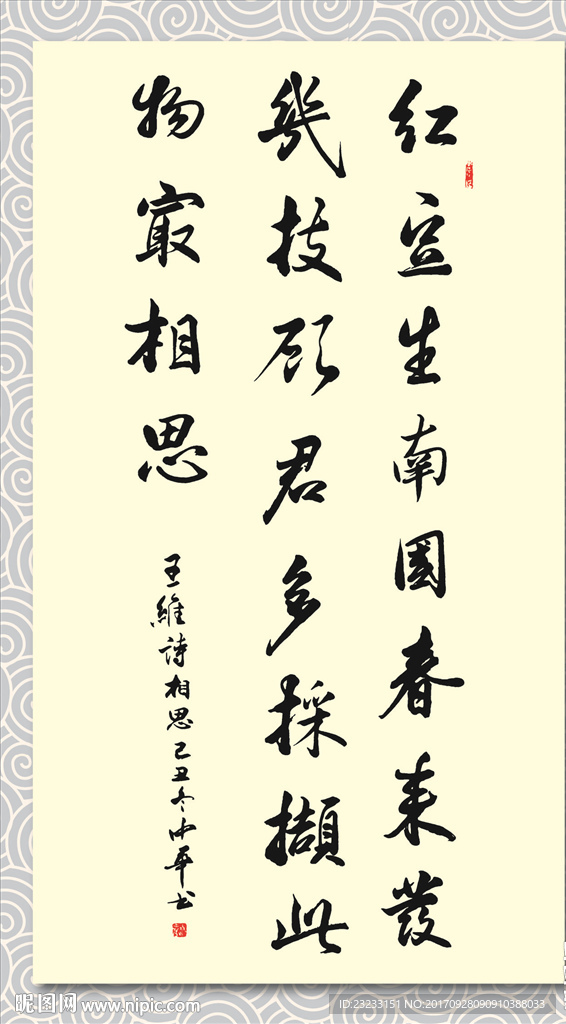 红豆生南國春来發
幾技願君多採擷此
物最相思
王維詩相思己丑冬中平书
昵图网 www.nipic.com
ID:23233151 NO:20170928090910388033